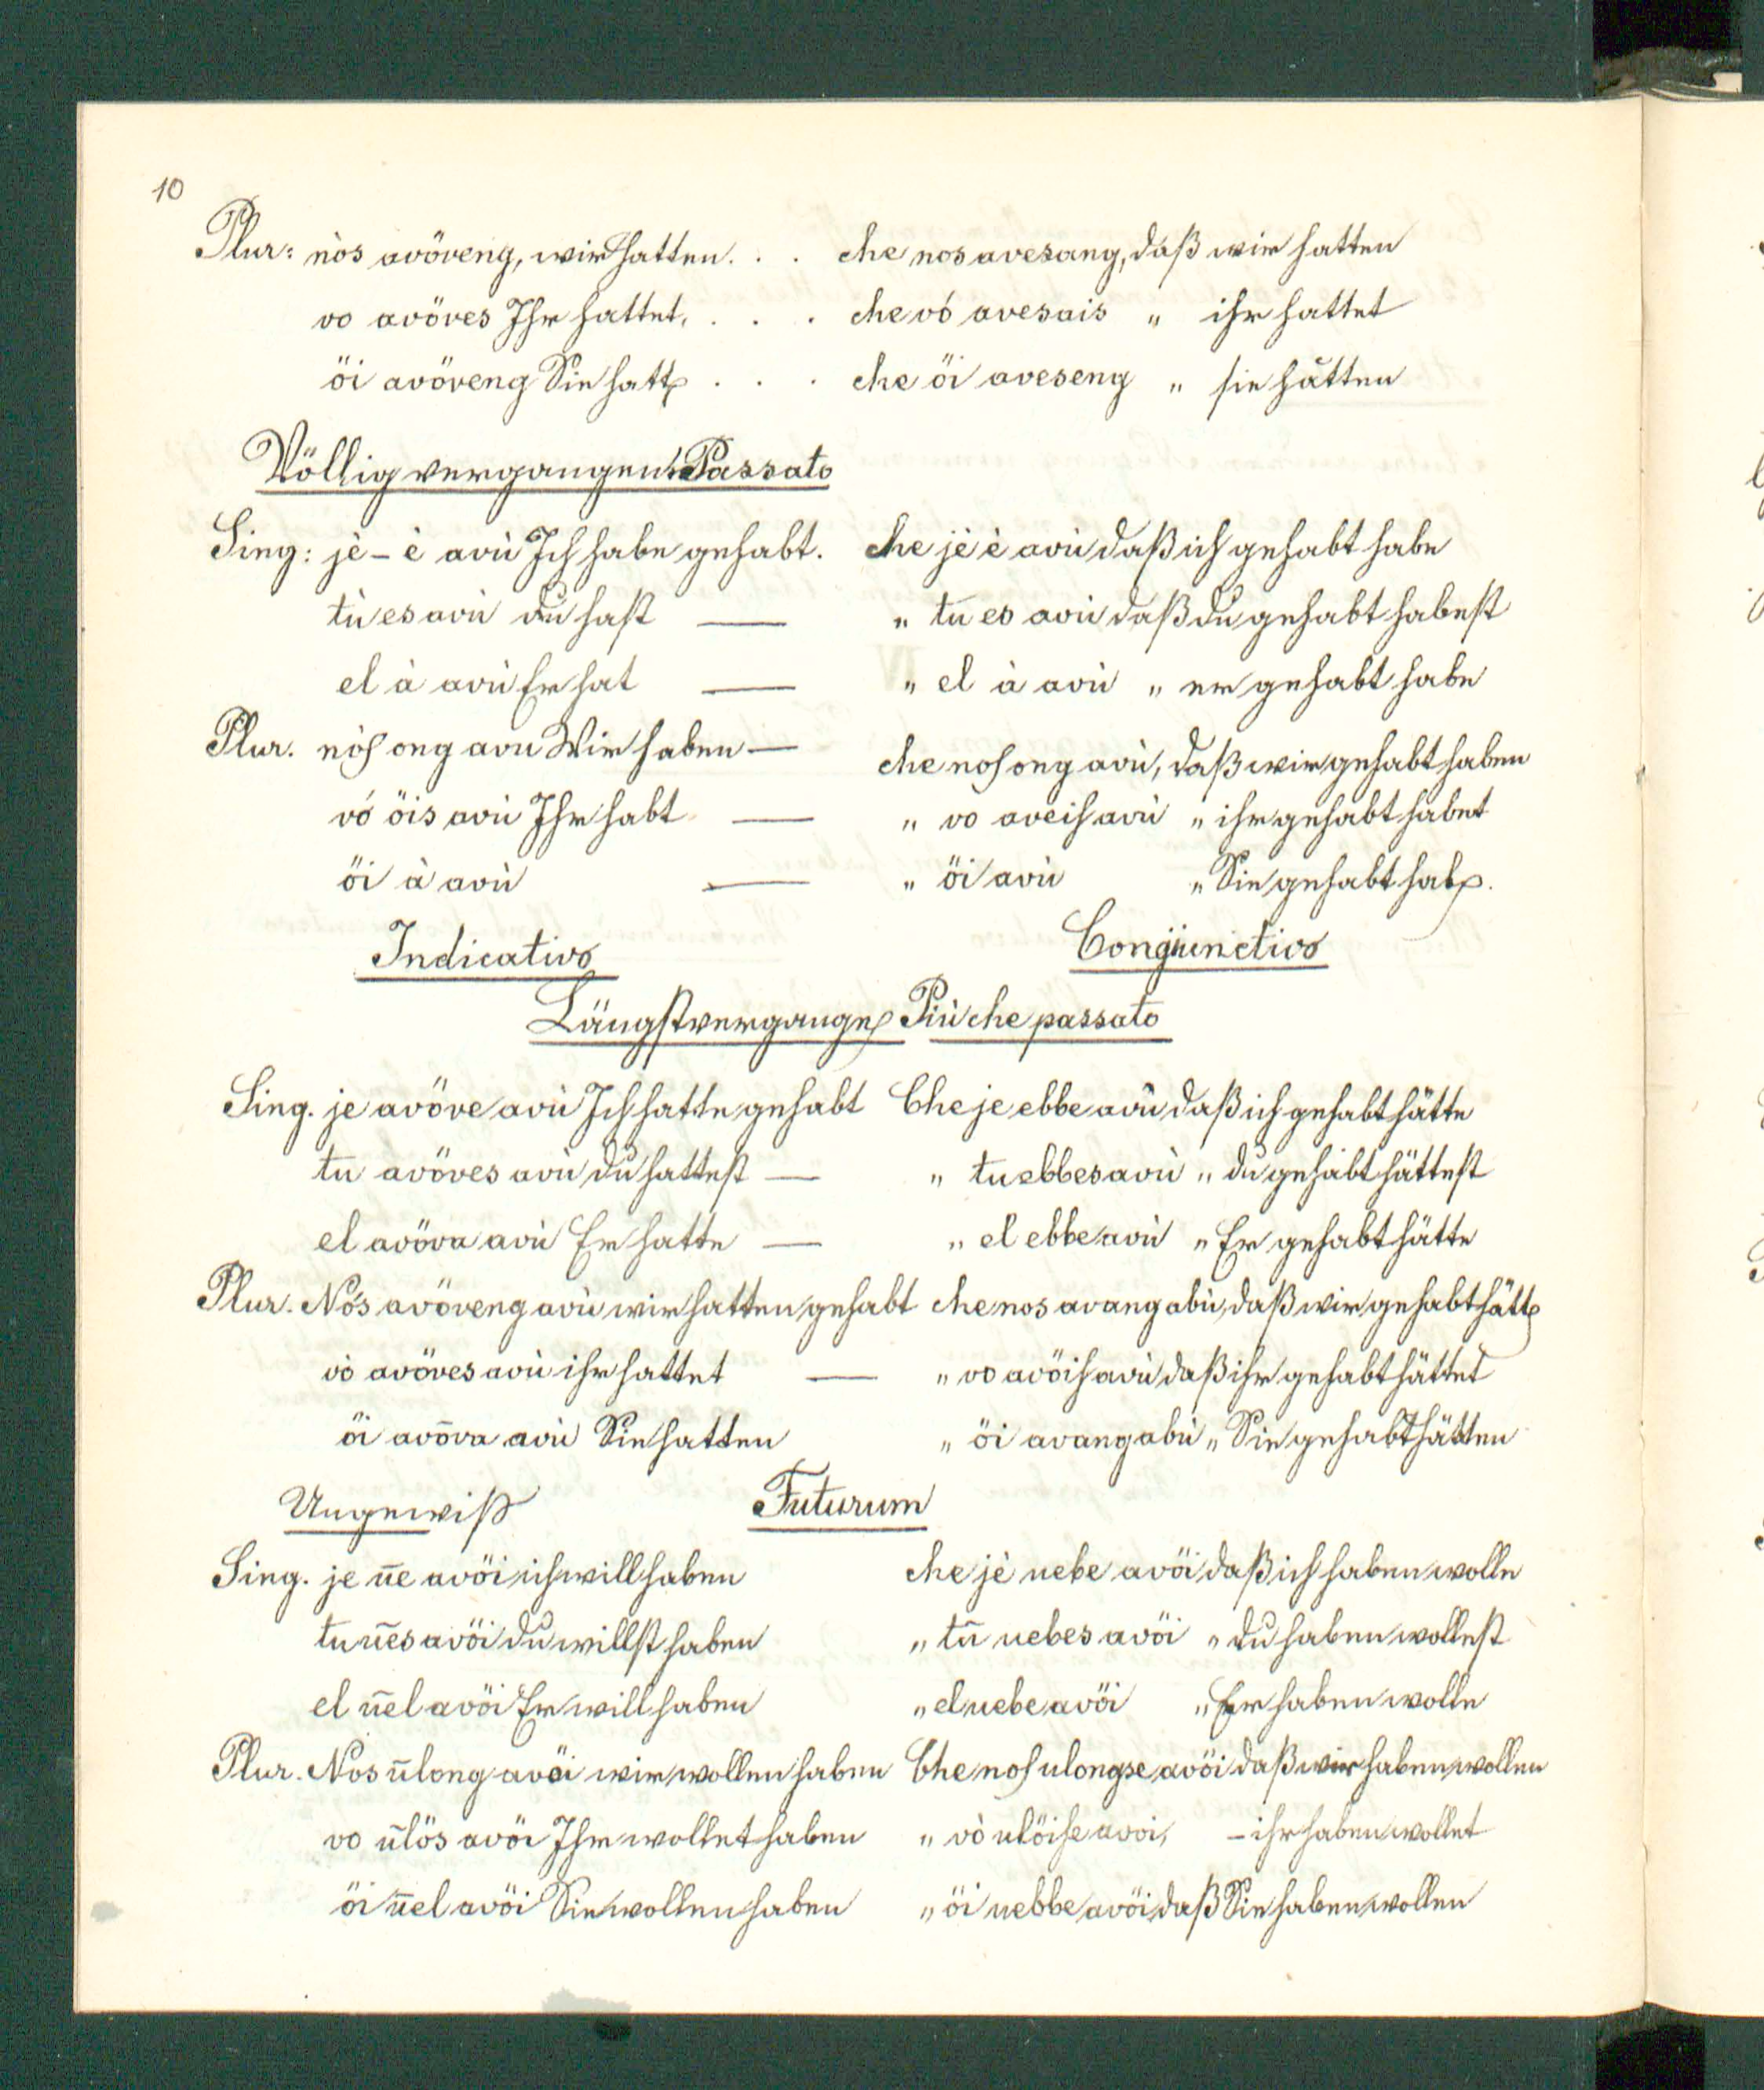 10
Plur: nòs avöveng, wir hatten. . . che nos avesang, daß wir hatten
vo avöves Ihr hattet, . . . che vó avesais „ ihr hattet
öi avöveng Sie hatten . . . che öi aveseng „ sie hätten
Völlig vergangene Passato
Sing: jè – è avù Ich habe gehabt. che jè è avù daß ich gehabt habe
tù es avù du hast — „ tu es avù daß du gehabt habest
el à avù Er hat — „ el à avù „ er gehabt habe
Plur. nòs ong avu Wir haben — che nos ong avù, daß wir gehabt haben
vó öis avù Ihr habt — „ vo aveis avù „ ihr gehabt habet
öi à avù — „ öi avù „ Sie gehabt haben.
Indicativo Congiunctivo
Längstvergangen Più che passato
Sing. je avöve avù Ich hatte gehabt Che je ebbe avù daß ich gehabt hätte
tu avöves avù du hattest — „ tu ebbes avù „ du gehabt hättest
el avöva avù Er hatte — „ el ebbe avù „ Er gehabt hätte
Plur. Nós avöveng avù wir hatten gehabt che nos avang abù, daß wir gehabt hätten
vò avöves avù ihr hattet — „ vo avöis avù daß ihr gehabt hättet
öi avöva avù Sie hatten „ öi avang abù „ Sie gehabt hätten
Ungewiß Futurum
Sing. je ūe avöi ich will haben che jè uebe avöi daß ich haben wolle
tu ūes avöi du willst haben „ tū uebes avöi „ du haben wollest
el ūel avöi Er will haben „ el uebe avöi „ Er haben wolle
Plur. Nos ūlong avöi wir wollen haben Che nos ulongse avöi daß wir haben wollen
vo ūlös avöi Ihr wollet haben „ vò ulöise avoi, – ihr haben wollet
öi ūel avöi Sie wollen haben „ öi uebbe avöi, daß Sie haben wollen